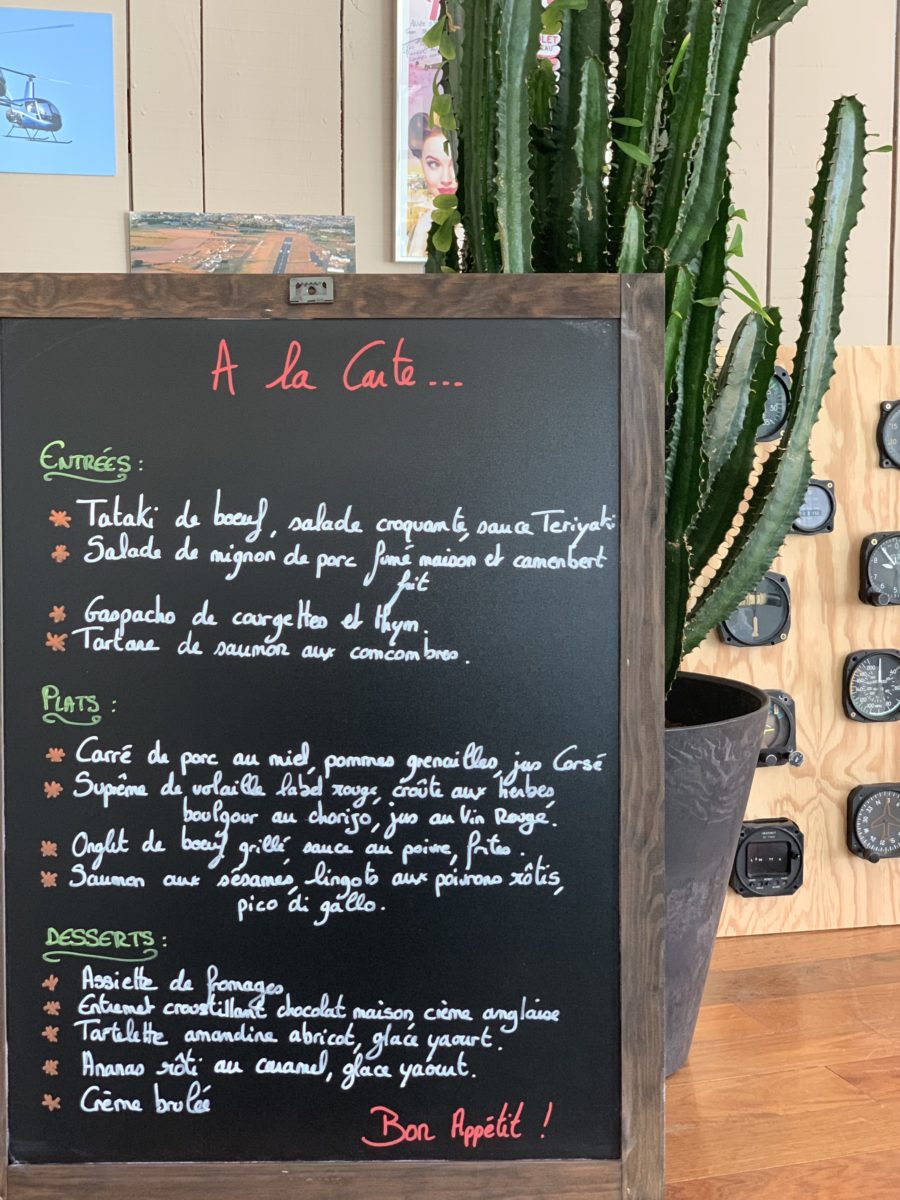 A la Carte...
ENTRÉES :
Tataki de boeuf, salade croquante, sauce Teriyaki
Salade de mignon de porc fumé maison et camembert
frit
Gaspacho de courgettes et thym
Tartare de saumon aux concombres.
PLATS :
Carré de porc au miel, pommes grenailles, jus Corsé
Suprême de volaille label rouge, croûte aux herbes,
boulgour au chorizo, jus au Vin Rouge.
Onglet de boeuf grillé sauce au poivre, frites.
Saumon aux sésames, lingots aux poivrons rôtis,
pico di gallo.
DESSERTS :
Assiette de fromages
Entremet croustillant chocolat maison, crème anglaise
Tartelette amandine abricot, glace yaourt.
Ananas rôti au caramel, glace yaourt.
Crème brulée
Bon Appétit !